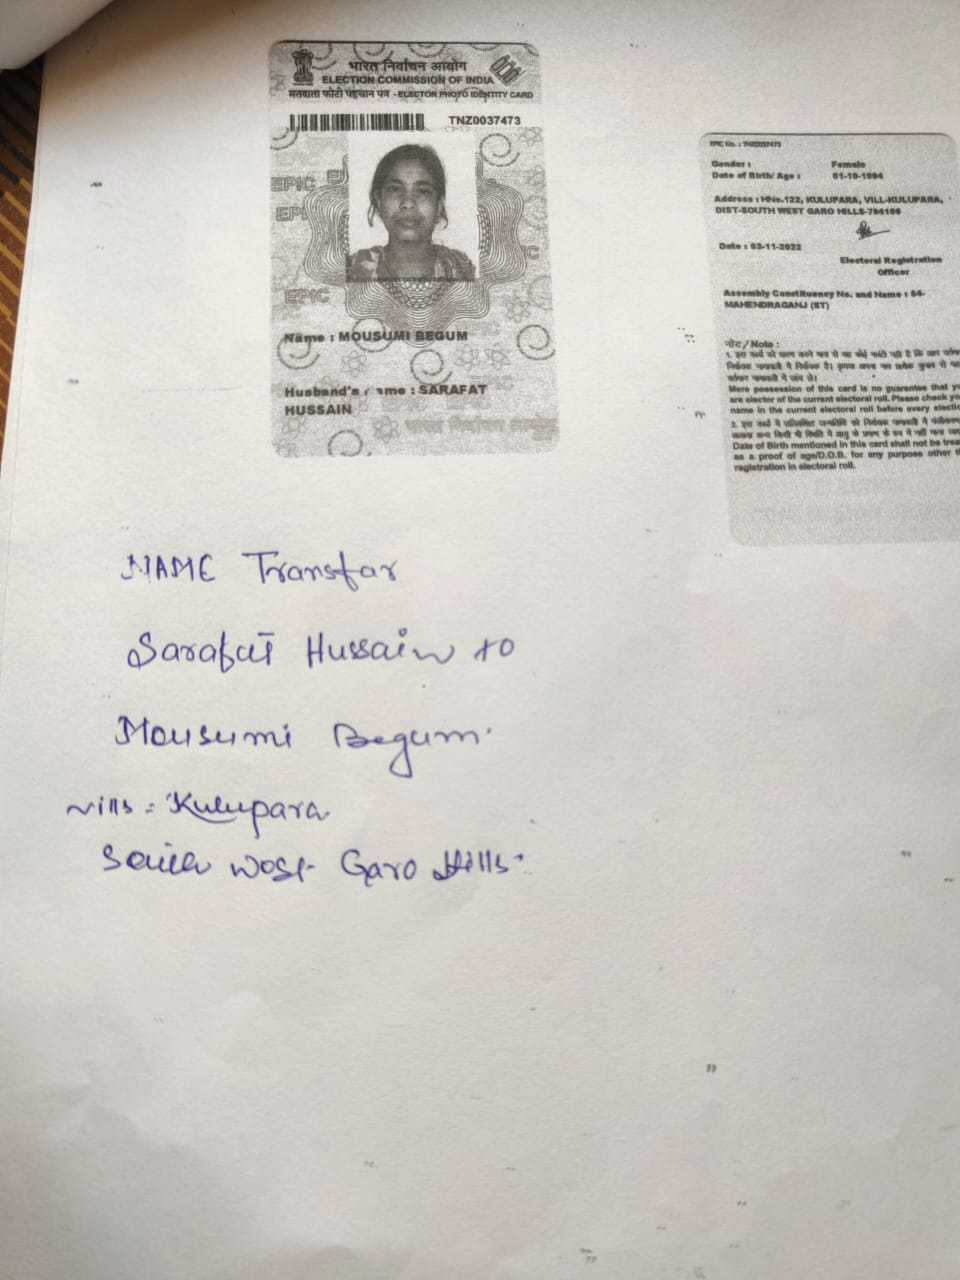 भारत निर्वाचन आयोग
ELECTION COMMISSION OF INDIA
मतदाता फोटो पहचान पत्र - ELECTOR PHOTO IDENTITY CARD
TNZ0037473
EPIC
EPIC
Name : MOUSUMI BEGUM
Husband's name : SARAFAT
HUSSAIN
EPIC No. : TNZ0037473
Gender : Female
Date of Birth/ Age : 01-10-1994
Address : HNo.122, KULUPARA, VILL-KULUPARA,
DIST-SOUTH WEST GARO HILLS-794106
Date : 03-11-2022
Electoral Registration
Officer
Assembly Constituency No. and Name : 54-
MAHENDRAGANJ (ST)
नोट/Note :
Mere possession of this card is no guarantee that
are elector of the current electoral roll. Please check
name in the current electoral roll before every
Date of Birth mentioned in this card shall not be
as a proof of age/D.O.B. for any purpose other
registration in electoral roll.
NAME Transfar
Sarafat Hussain to
Mousumi Begum
vills : Kulupara
West Garo Hills